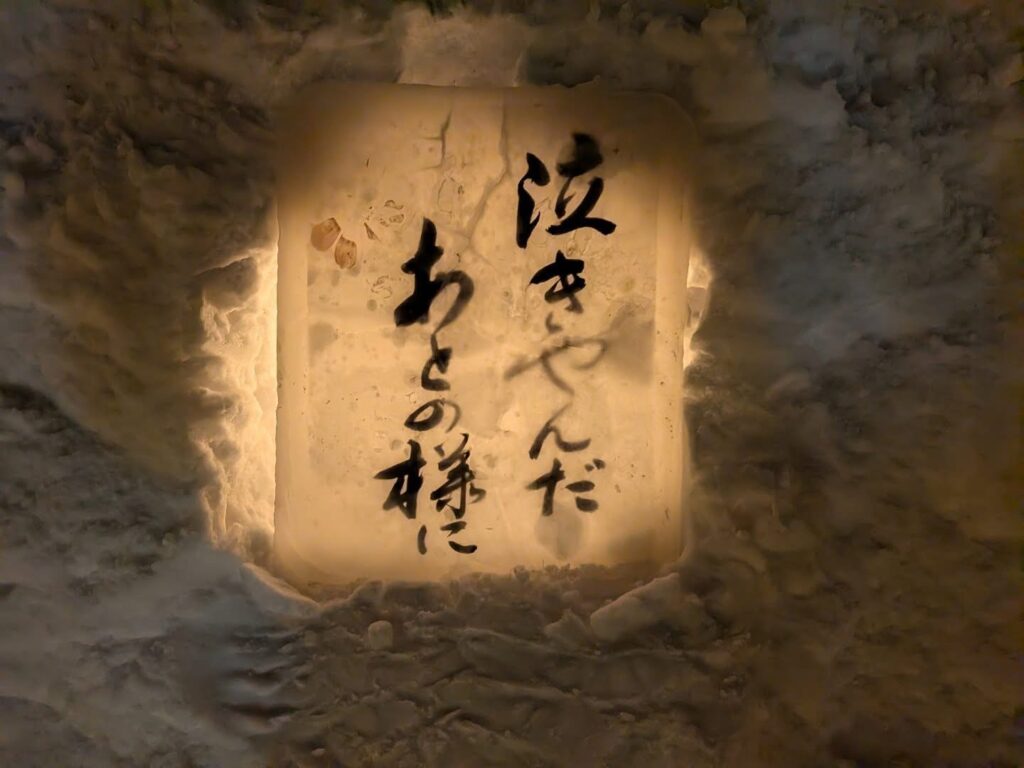 泣きやんだ
あとの様に